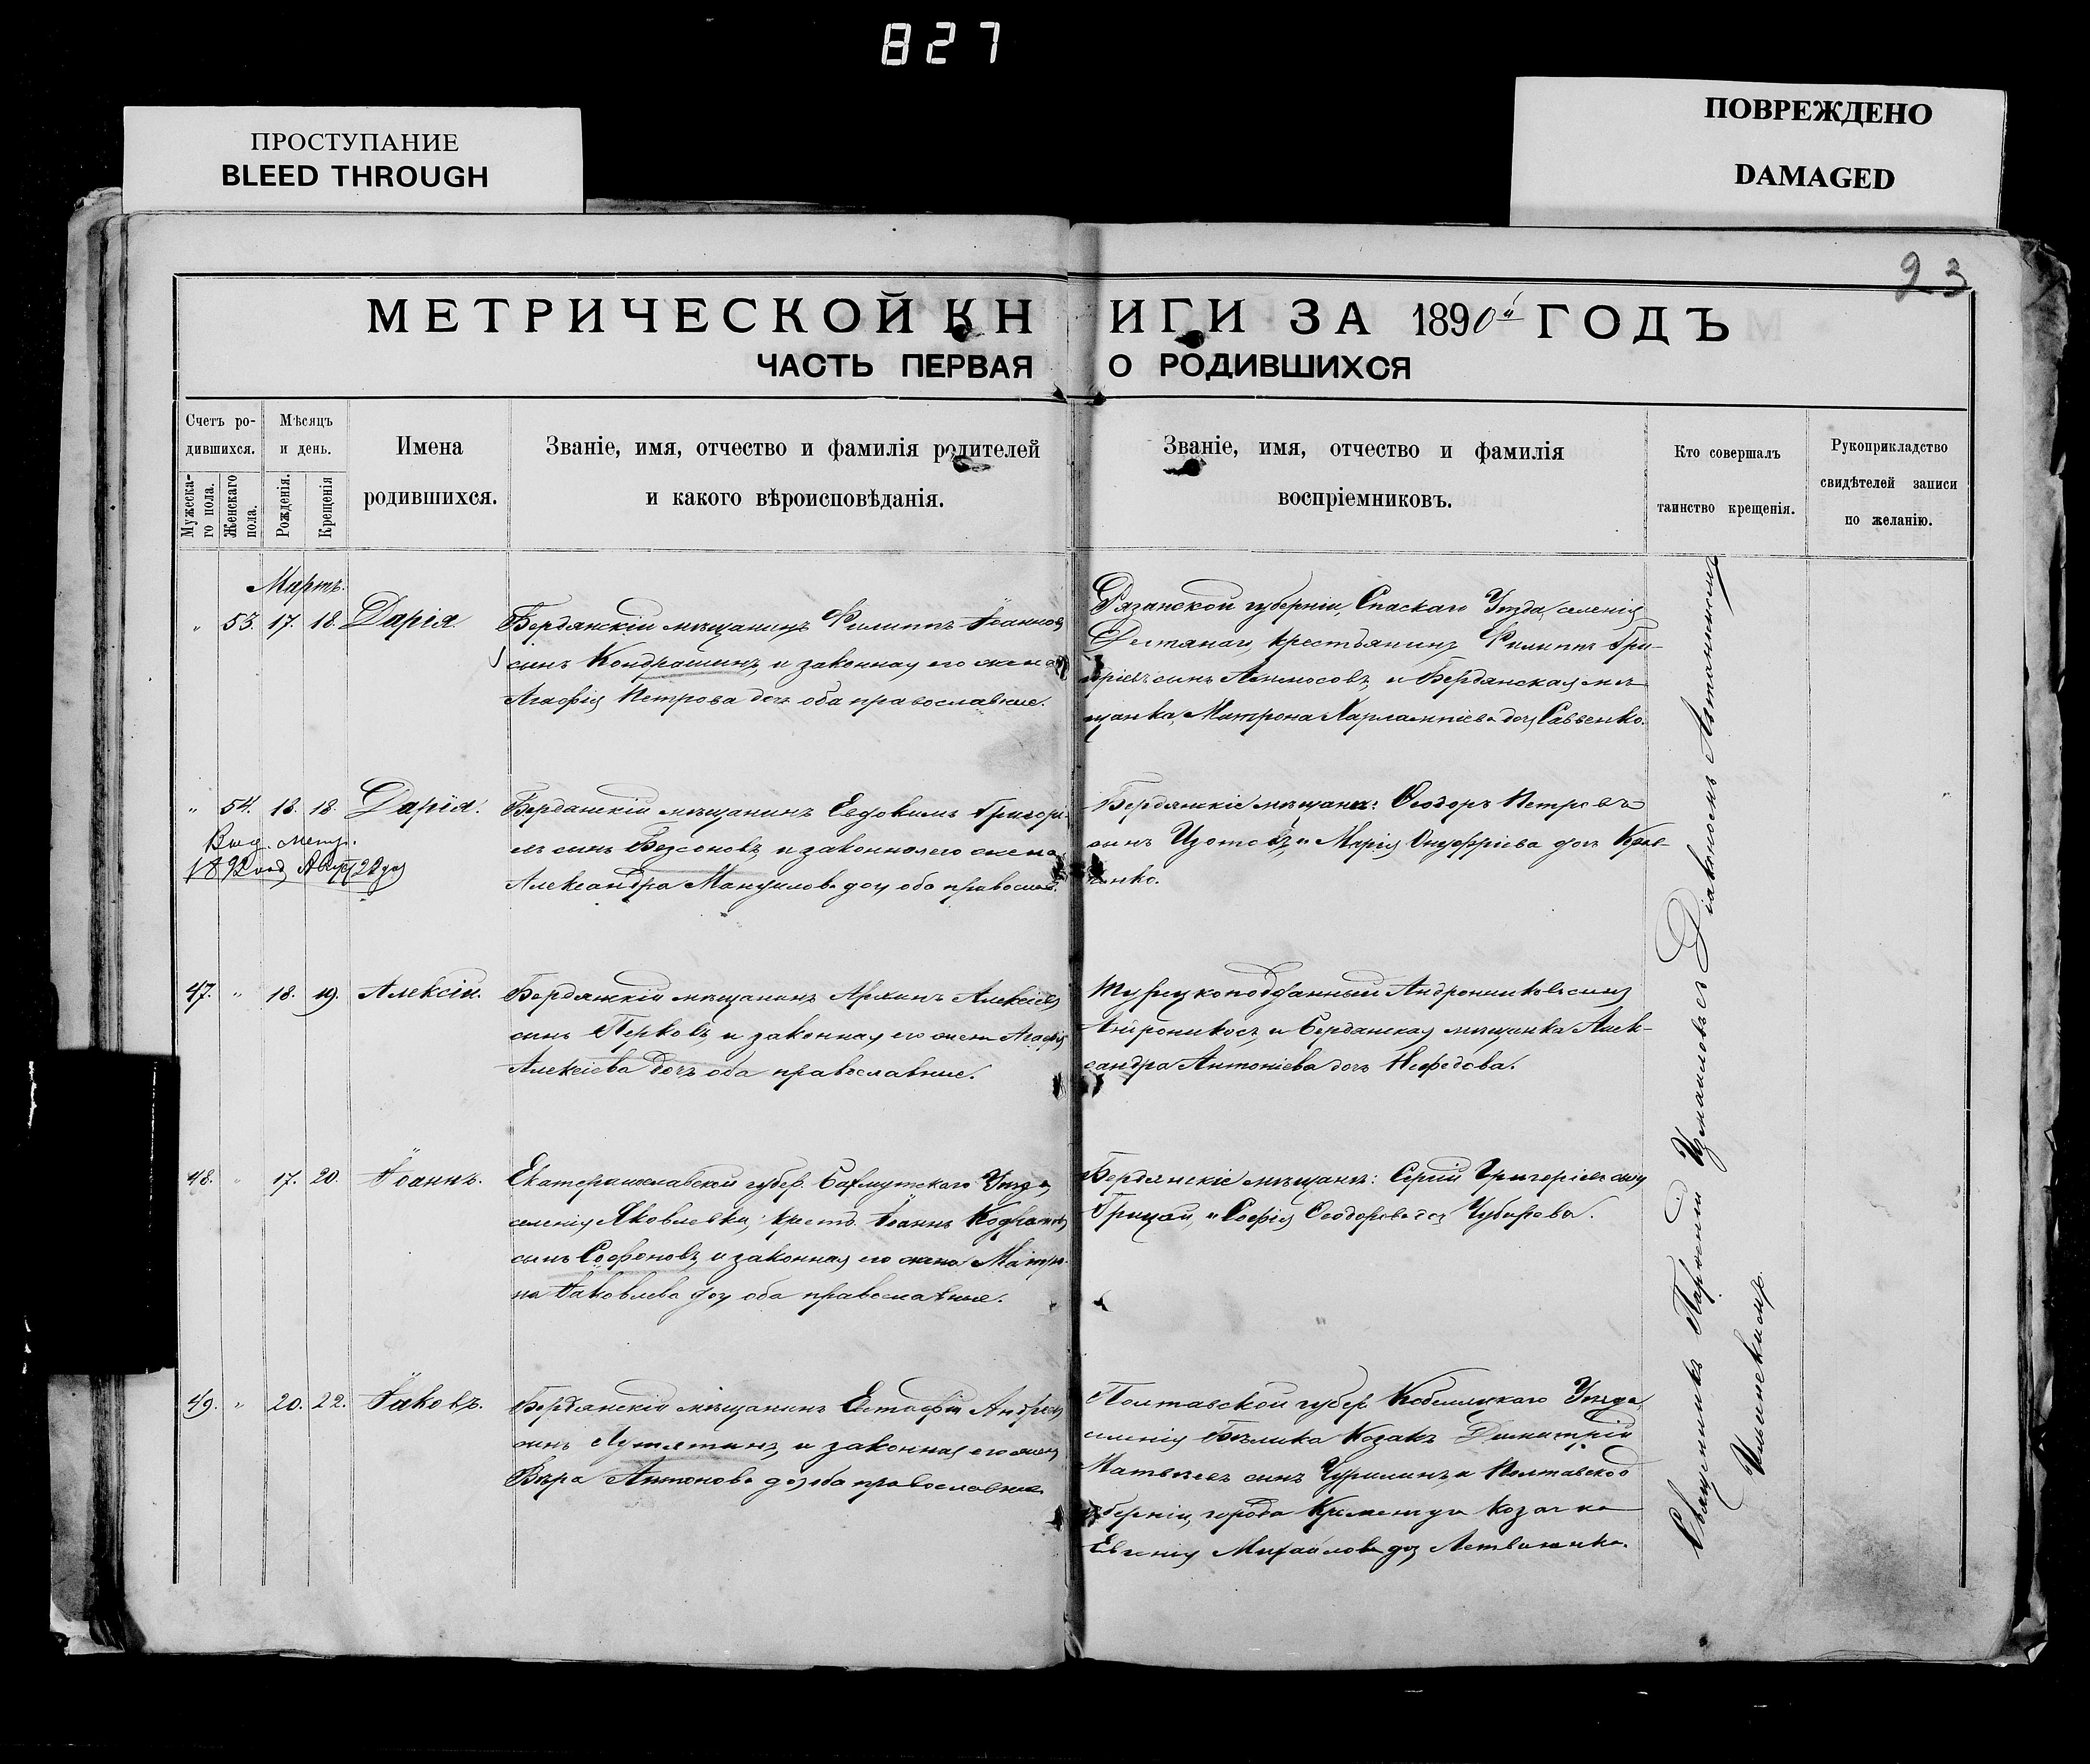 827
ПРОСТУПАНИЕ
BLEED THROUGH
ПОВРЕЖДЕНО
DAMAGED
23
МЕТРИЧЕСКОЙ КНИГИ ЗА 1890й ГОДЪ
ЧАСТЬ ПЕРВАЯ О РОДИВШИХСЯ
Счетъ ро-
дившихся.
Мужеска-
го пола.
Женскаго
пола.
Мѣсяцъ
и день.
Рожденія.
Крещенія
Имена
родившихся.
Званіе, имя, отчество и фамилія родителей
и какого вѣроисповѣданія.
Званіе, имя, отчество и фамилія
воспріемниковъ.
Кто совершалъ
таинство крещенія.
Рукоприкладство
свидѣтелей записи
по желанію.
Мартъ.
" 53. 17. 18. Дарія.
Бердянскій мѣщанинъ Филиппъ Іоанновъ
сынъ Кондрашинъ, и законная его жена
Агафія Петрова дочь оба православные.
Рязанской губерніи, Спаскаго Уѣзда, селенія
крестьянинъ Филиппъ Гри-
горіевъ сынъ и Бердянская мѣ-
щанка, Матрона Харлампіева дочь Савенко.
" 54. 13. 18. Дарія.
Выд. метр.
1892 год, Авгу 22 дня
Бердянскій мѣщанинъ Евдокимъ Григорі-
евъ сынъ Безсоновъ, и законная его жена
Александра Мануилова доч, оба правосл.
Бердянскіе мѣщане: Ѳеодоръ Петровъ
сынъ Изотовъ, и Марія Онуфріева дочь
47. " 18. 19. Алексій.
Бердянскій мѣщанинъ Архипъ Алексіевъ
сынъ Перковъ, и законная его жена Агафія
Алексіева дочь оба православные.
Турецкоподданный Андрониковъ сынъ
и Бердянская мѣщанка Алек-
сандра Антоніева дочь Нефедова.
48. " 17. 20. Іоаннъ.
Екатеринославской губер. Бахмутскаго Уѣзда,
селенія Яковлевки, крест. Іоаннъ Кодратовъ
сынъ Софроновъ, и законная его жена Матро-
на Іаковлева доч, оба православные.
Бердянскіе мѣщане: Сергій Григоріевъ сынъ
Грицай, и Софія Ѳеодорова доч Чубарова.
49. " 20. 22. Іаковъ.
Бердянскій мѣщанинъ Евстафій Андреевъ
сынъ Путятинъ, и законная его жена
Вѣра Антонова доч, оба православные.
Полтавской губер. Кобеляцкаго Уѣзда,
селенія Бѣлика Козакъ Димитрій
Матвѣевъ сынъ Чурилинъ, и Полтавской
губерніи, города Кременчуга Козачка
Евгенія Михайлова доч,
Священникъ Парѳеній Измаиловъ съ Діакономъ